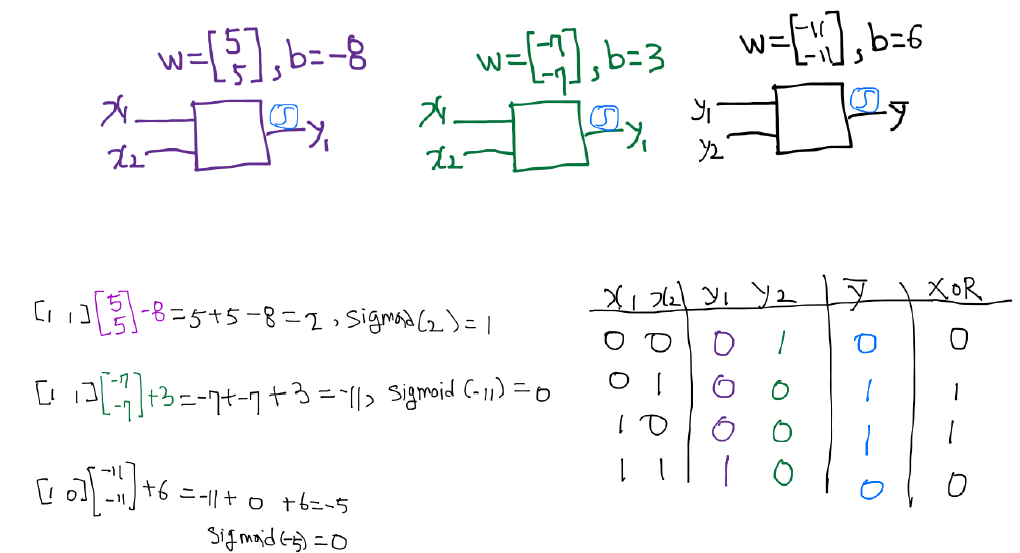 w=[5 5], b=-8
w=[-7 -7], b=3
w=[-11 -11], b=6
x1
x2
S
y1
x1
x2
S
y1
y1
y2
S
ȳ
[1 1][5 5]-8=5+5-8=2, sigmoid(2)=1
[1 1][-7 -7]+3=-7+-7+3=-11, sigmoid(-11)=0
[1 0][-11 -11]+6=-11+0+6=-5
sigmoid(-5)=0
x1 x2 y1 y2 ȳ XOR
0 0 0 1 0 0
0 1 0 0 1 1
1 0 0 0 1 1
1 1 1 0 0 0